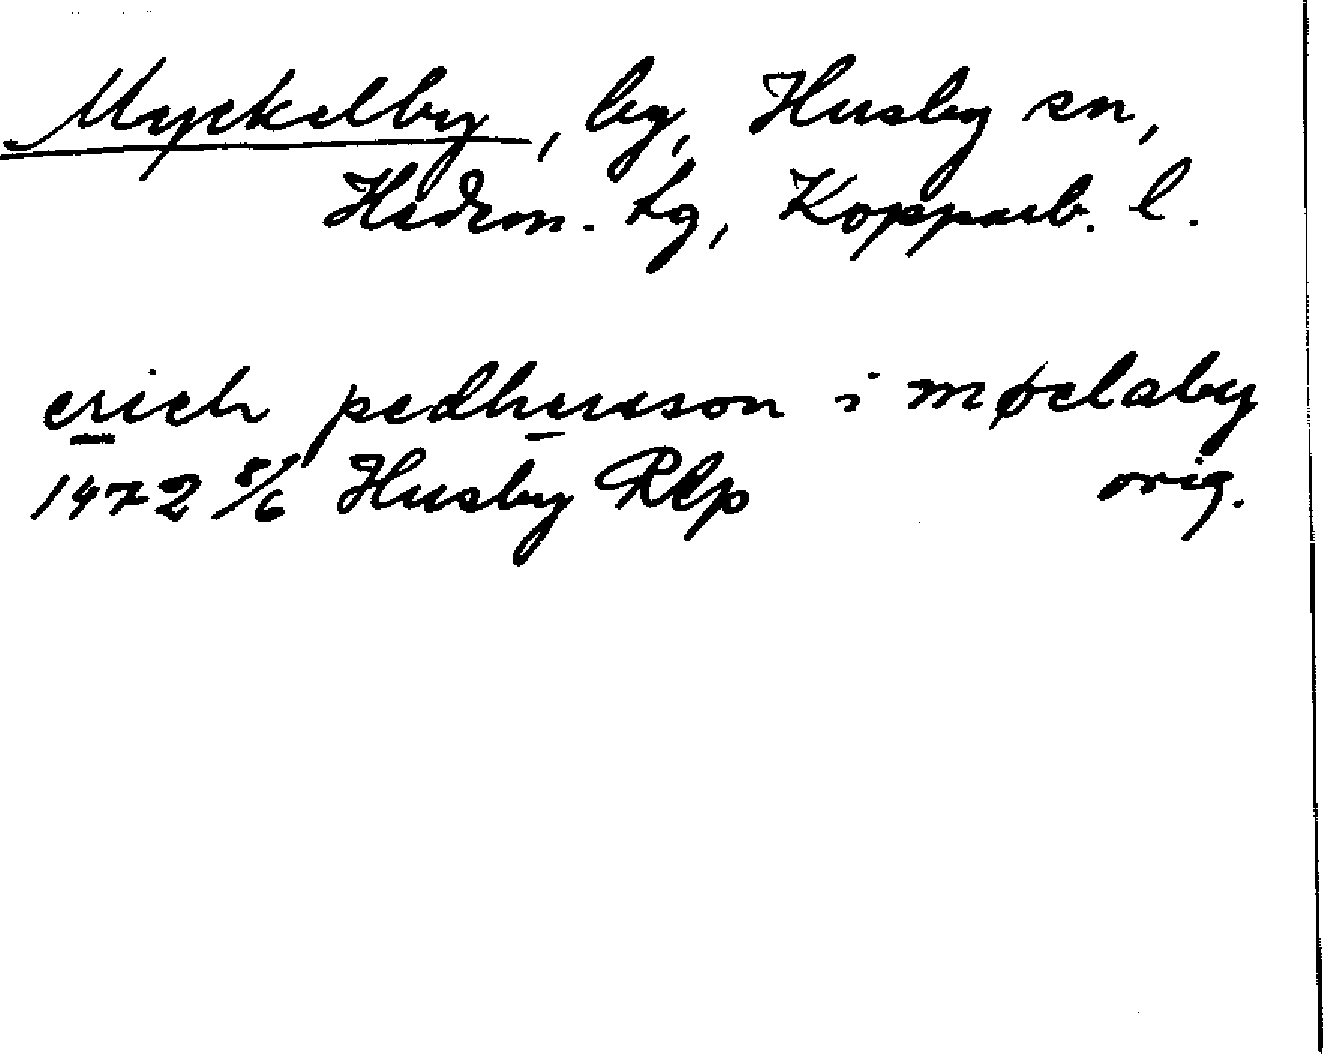 Myckelby, by, Husby sn,
Hedem. tg, Kopparb. l.
erich pedhersson i møclaby
1472 8/6 Husby Rlp orig.